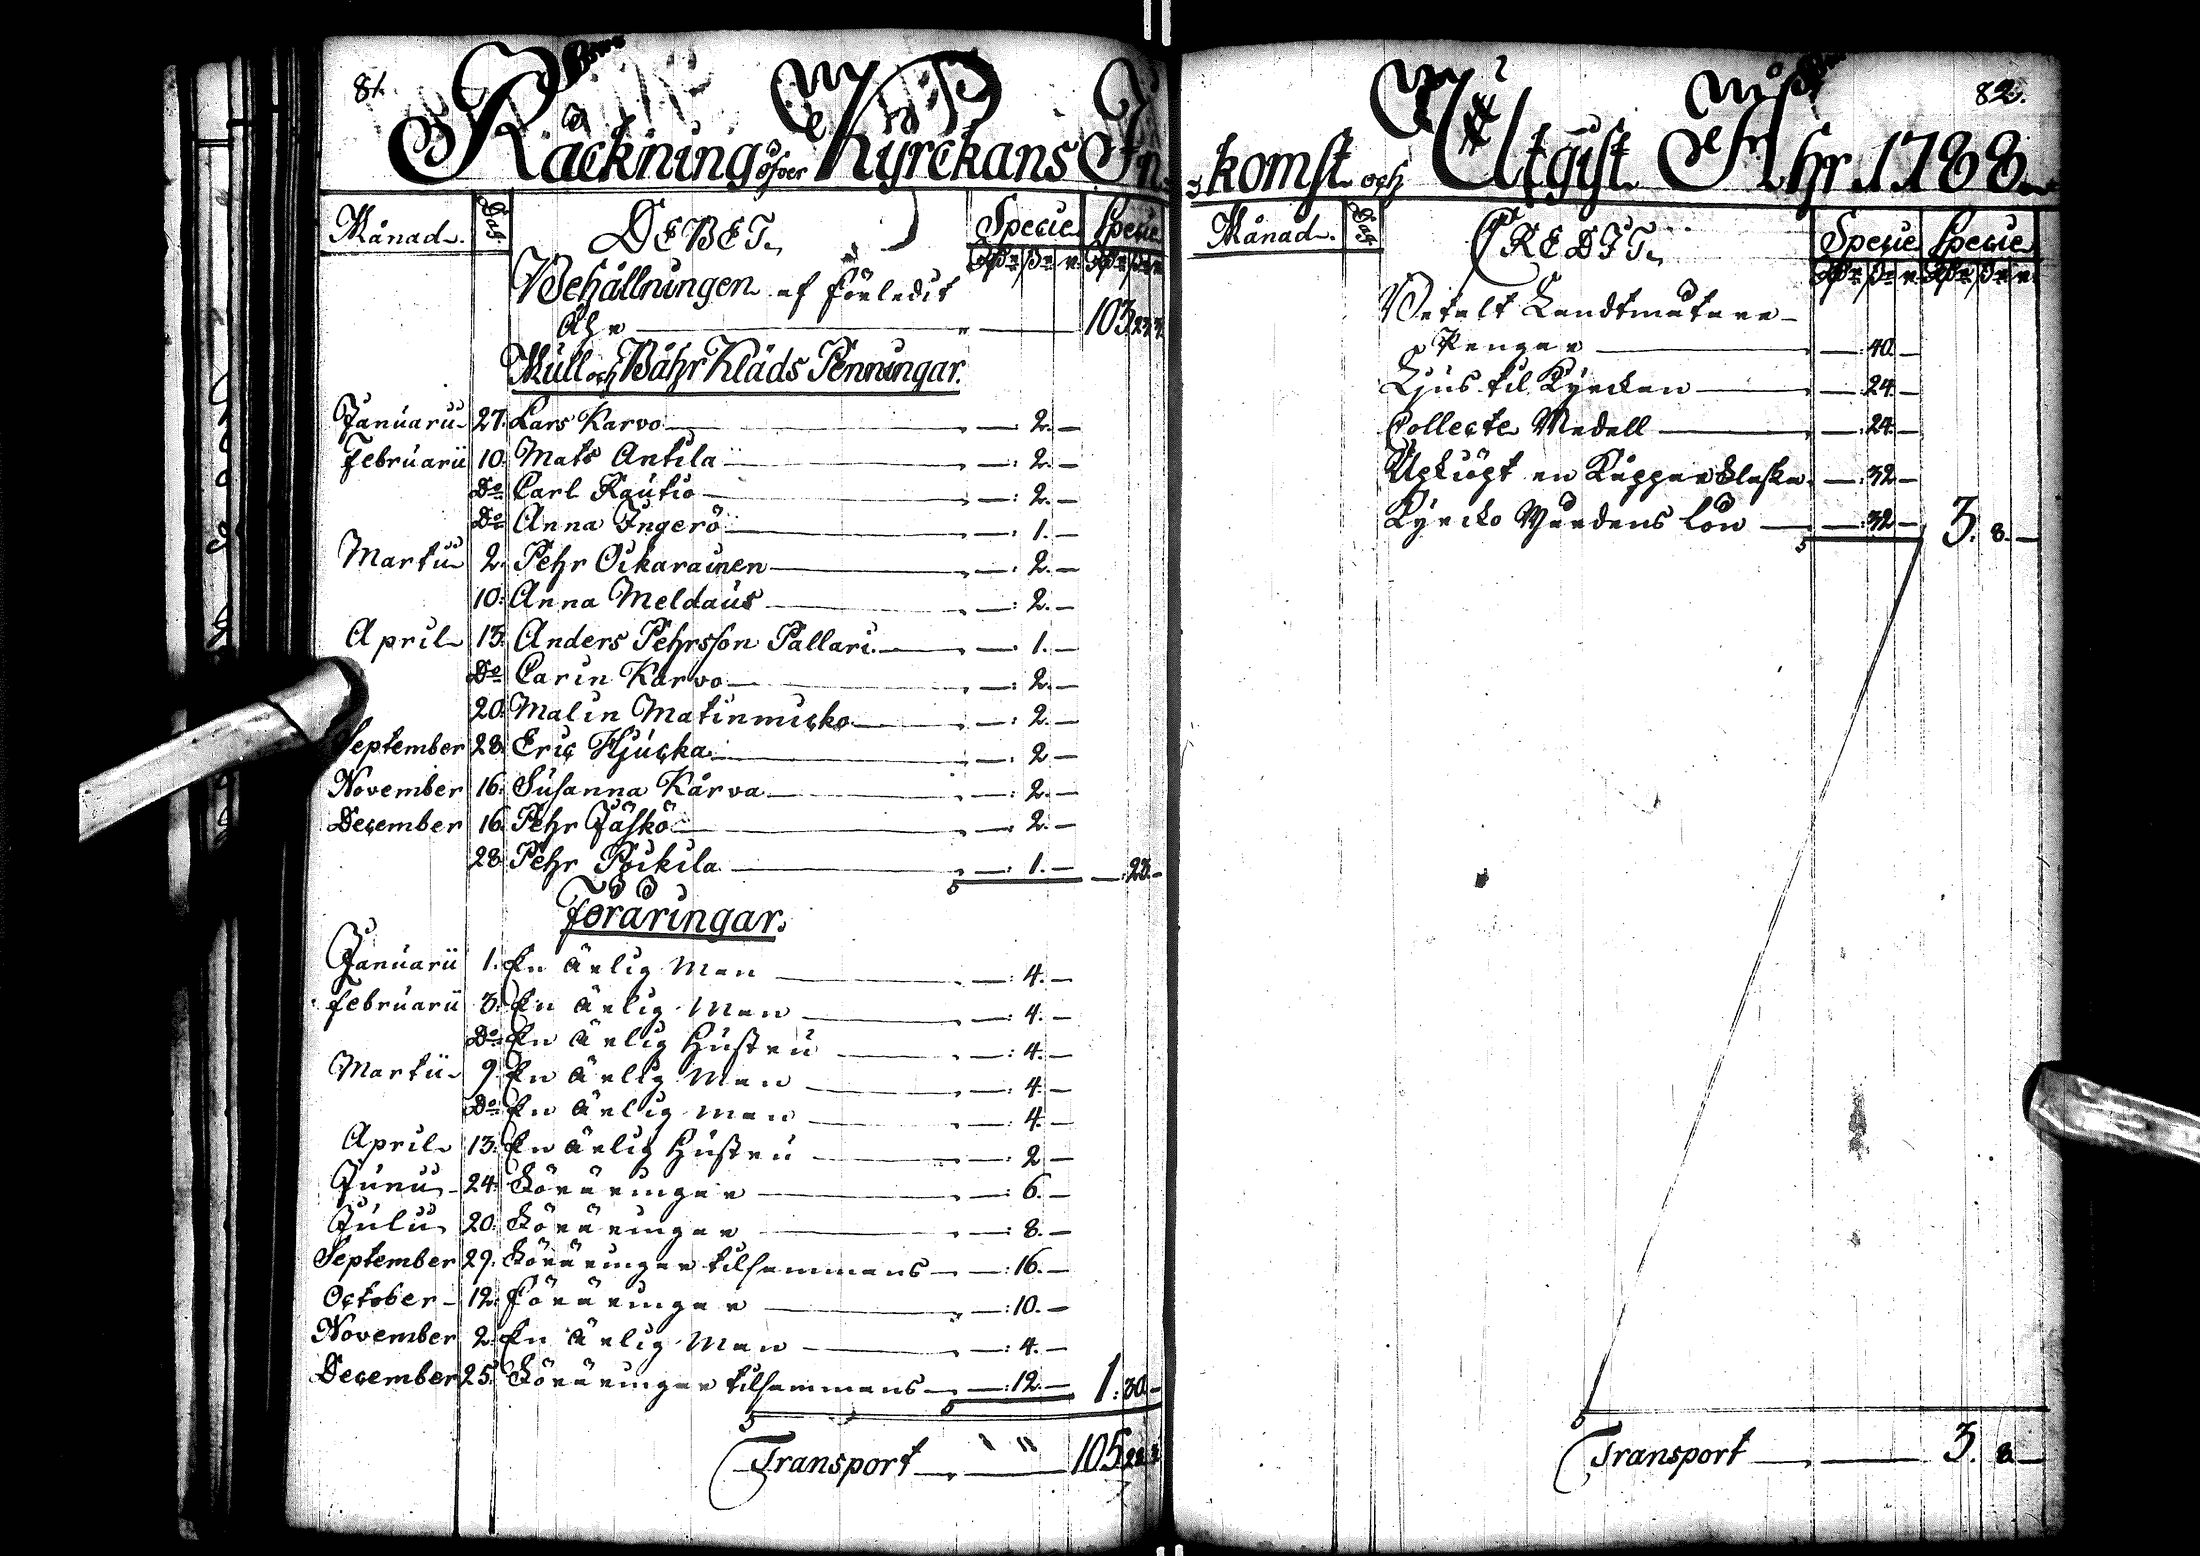 81.
Räckning öfver Kyrckans In-
Månad. Dag. DEBET. Specie Specie
Behållningen af förledit
Åhr 103. 23.
Mull och Båhr Kläds Penningar.
Januarii 27. Lars Karvo 2. —
Februarii 10. Mats Antila 2. —
Do Carl Rautio 2. —
Do Anna Ingerö 1. —
Martii 2. Pehr Oikarainen 2. —
10. Anna Meldaus 2. —
April 13. Anders Pehrsson Pallari 1. —
Do Carin Karvo 2. —
20. Malin Matinmicko 2. —
September 28. Eric Hjucka 2 —
November 16. Susanna Kårva 2. —
December 16. Pehr Jäskö 2. —
28. Pehr Poikila 1. — — : 23. —
Föräringar.
Januarii 1. En ärlig Man 4. —
Februarii 3. En ärlig Man 4. —
Do En ärlig Hustru 4. —
Martii 9. En ärlig Man 4. —
Do En ärlig Man 4. —
April 13. En ärlig Hustru 2 —
Junii 24. Föräringar 6. —
Julii 20. Föräringar 8. —
September 29. Föräringar tilsammans 16. —
October 12. Föräringar 10. —
November 2. En ärlig Man 4. —
December 25. Föräringar tilsammans 12. — 1. 30. —
Transport 105.
82.
-komst och Utgift Åhr 1788.
Månad. Dag. CREDIT. Specie Specie
Betalt Landtmätare
Pengar — : 40. —
Ljus til Kyrckan — : 24. —
Collecte Medell — : 24. —
Upkiöpt en Kåppar flaska — : 32 —
Kyrcko Vardens lön — : 32 — 3. 8. —
Transport 3. 8. —